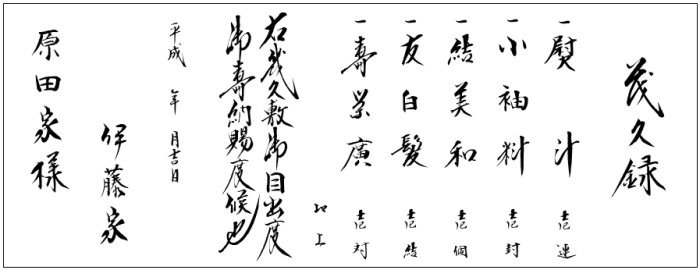 茂久録
一熨斗 壱連
一小袖料 壱封
一結美和 壱個
一友白髪 壱結
一壽栄廣 壱対
以上
右幾久敷御目出度
御壽納賜度候也
平成 年 月吉日
伊藤家
原田家様